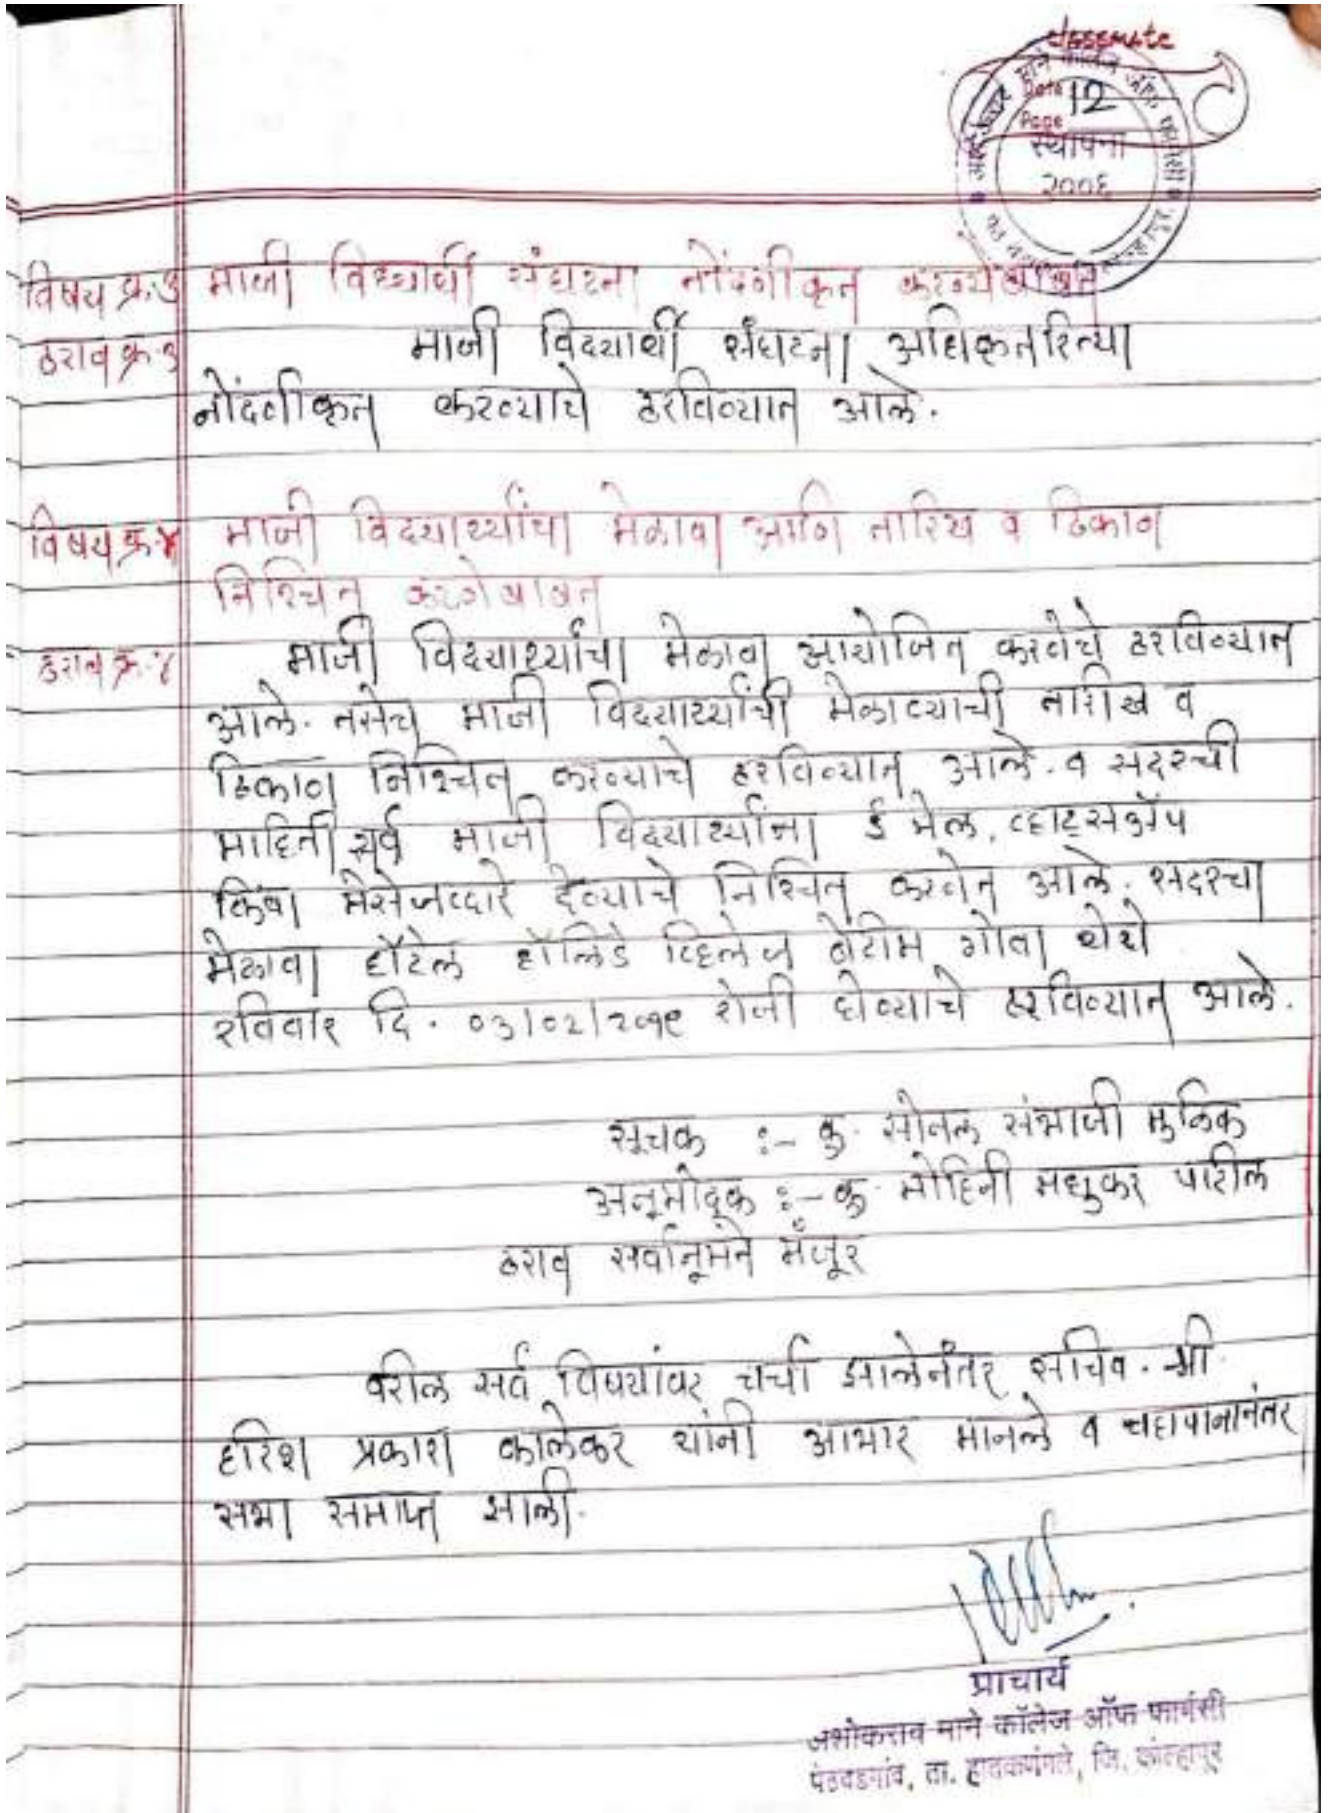 classmate
Date
12
Page
स्थापना
२००६
विषय क्र.३ माजी विद्यार्थी संघटना नोंदणीकृत करण्येबाबत
ठराव क्र.३ माजी विदयार्थी संघटना अधिकृतरित्या
नोंदणीकृत करण्याचे ठरविण्यात आले.
विषय क्र.४ माजी विदयार्थ्यांचा मेळावा आणि तारिख व ठिकाण
निश्चित करणेबाबत
ठराव क्र.४ माजी विदयार्थ्यांचा मेळावा आयोजित करणेचे ठरविण्यात
आले. तसेच माजी विदयार्थ्यांची मेळाव्याची तारीख व
ठिकाण निश्चित करण्याचे ठरविण्यात आले. व सदरची
माहिती सर्व माजी विदयार्थ्यांना ई मेल, व्हाट्सअॅप
किंवा मेसेजव्दारे देण्याचे निश्चित करणेत आले. सदरचा
मेळावा हॉटेल हॉलिडे व्हिलेज बेटीम गोवा येथे
रविवार दि. ०३/०२/२०१९ रोजी घेण्याचे ठरविण्यात आले.
सूचक :- कु. सोनल संभाजी मुळिक
अनूमोदक :- कु. मोहिनी मधुकर पाटील
ठराव सर्वानूमते मंजूर
वरील सर्व विषयांवर चर्चा झालेनंतर सचिव. श्री.
हरिश प्रकाश कालेकर यांनी आभार मानले व चहापानानंतर
सभा समाप्त झाली.
प्राचार्य
अशोकराव माने कॉलेज ऑफ फार्मसी
पेठवडगांव, ता. हातकणंगले, जि. कोल्हापूर